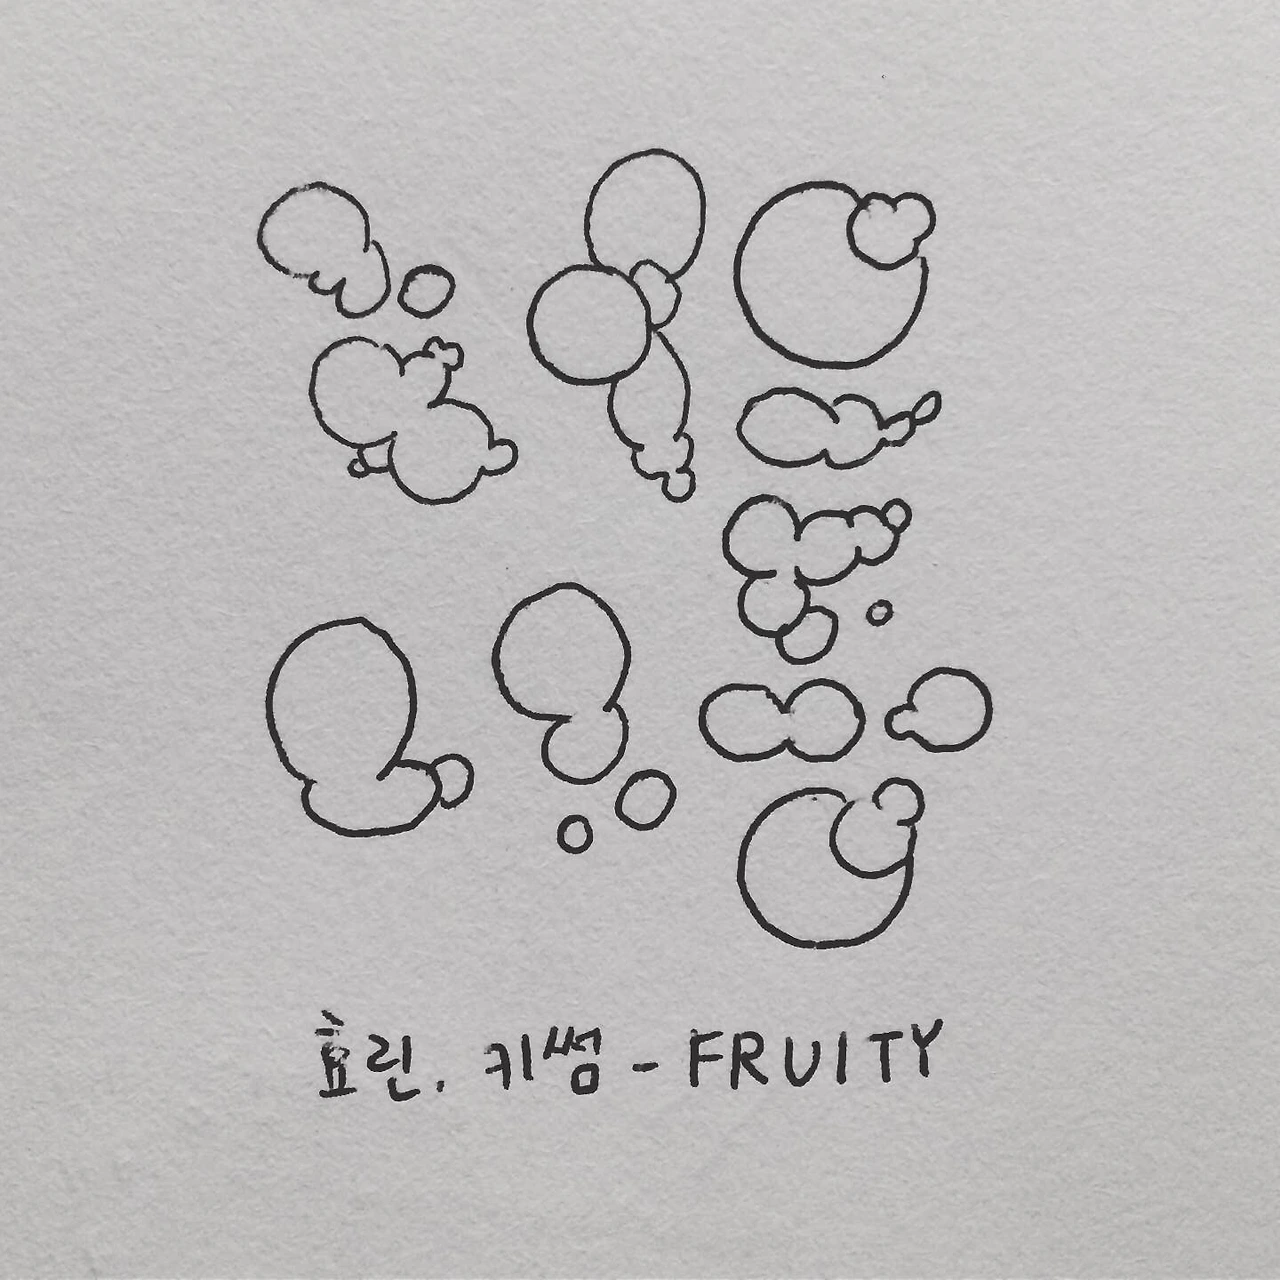 효린. 키썸 - FRUITY